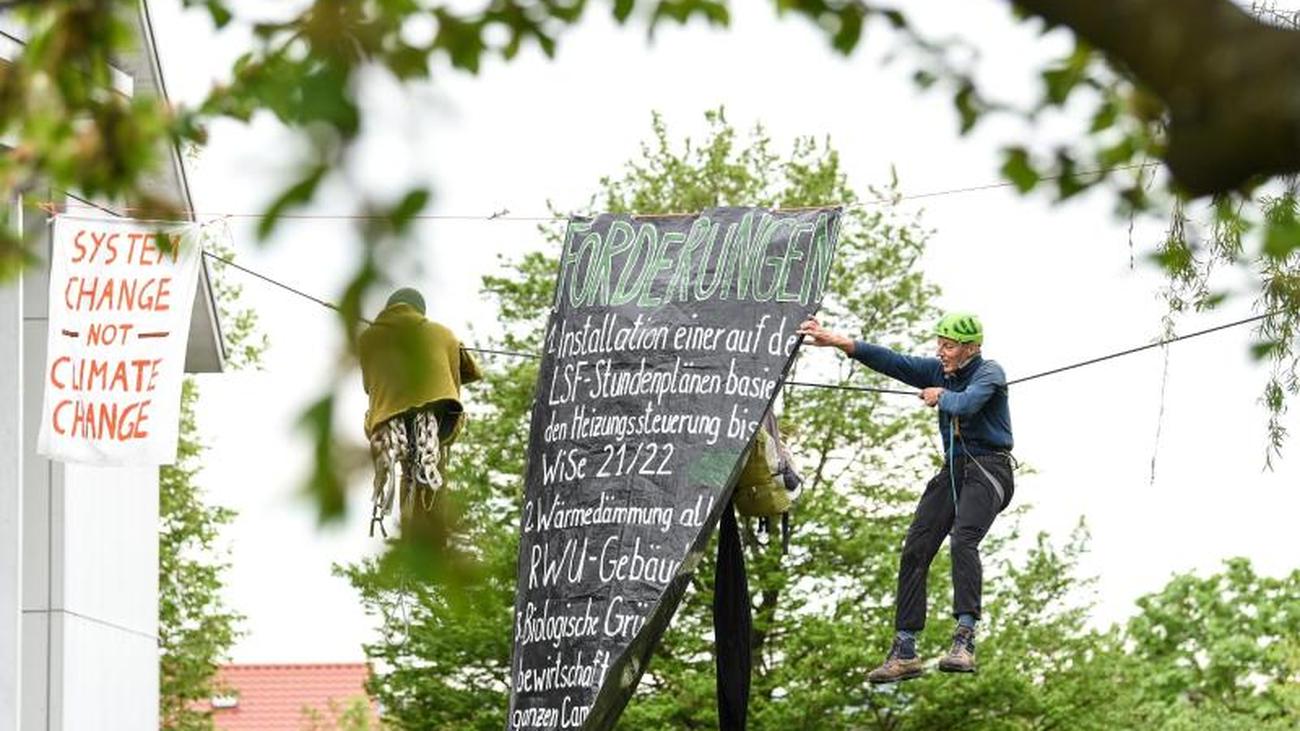 SYSTEM
CHANGE
- NOT -
CLIMATE
CHANGE
FORDERUNGEN
1. Installation einer auf de
LSF-Stundenplänen basie
den Heizungssteuerung bis
WiSe 21/22
2. Wärmedämmung al
RWU-Gebäu
3. Biologische Grü
bewirtschaft
ganzen Cam